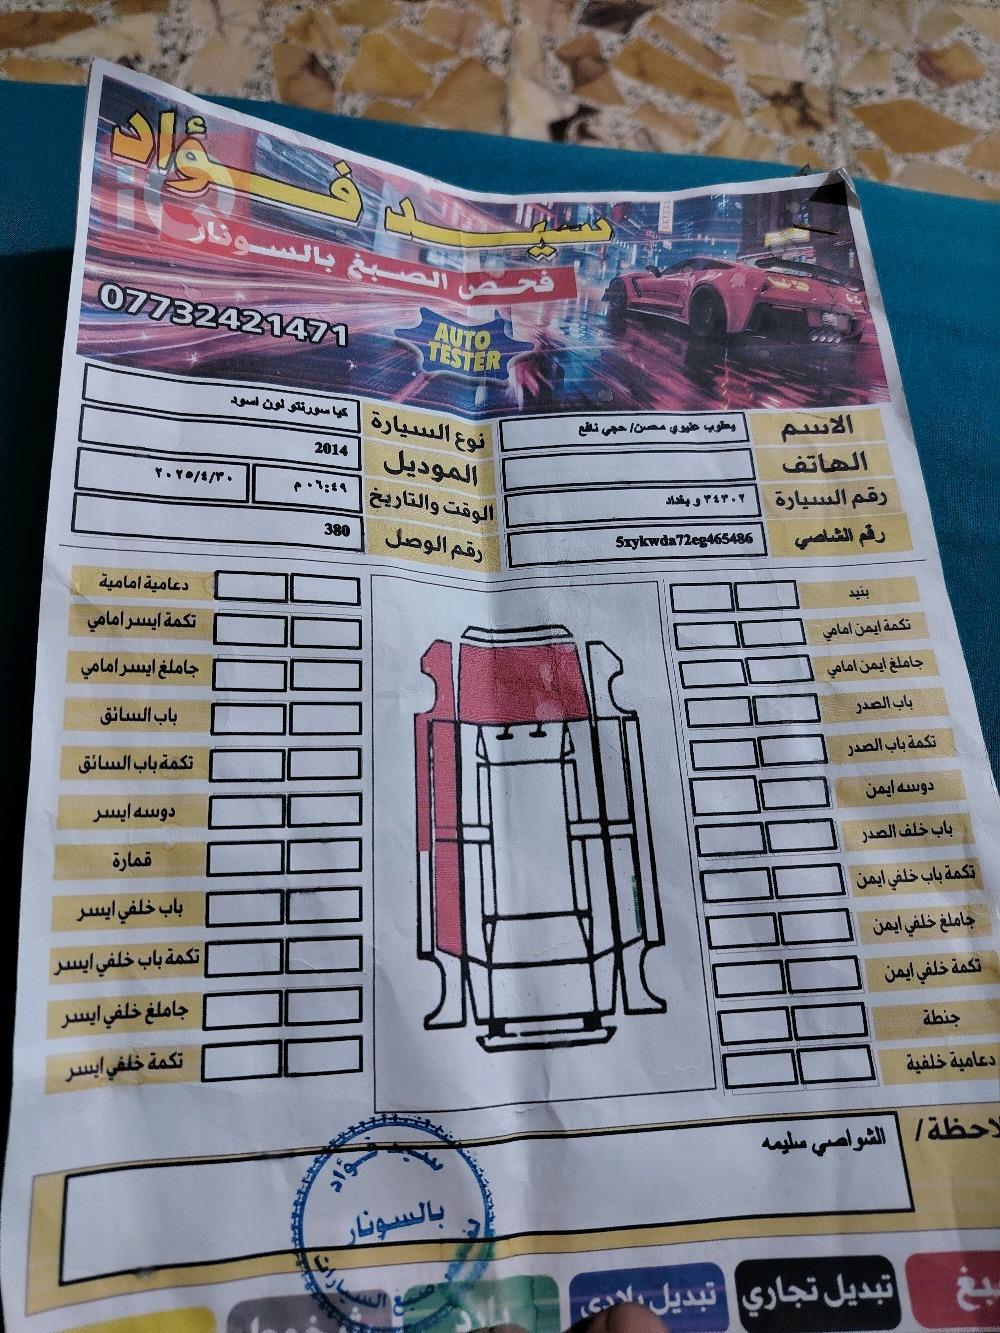 سيد فؤاد
فحص الصبغ بالسونار
07732421471
AUTO
TESTER
الاسم
يعقوب عليوي محسن/ حجي نافع
نوع السيارة
كيا سورنتو لون اسود
الهاتف
الموديل
2014
رقم السيارة
٣٤٣٠٢ و بغداد
الوقت والتاريخ
٠٦:٤٩ م
٢٠٢٥/٤/٣٠
رقم الشاصي
5xykwda72eg465486
رقم الوصل
380
بنيد
تكمة ايمن امامي
جاملغ ايمن امامي
باب الصدر
تكمة باب الصدر
دوسه ايمن
باب خلف الصدر
تكمة باب خلفي ايمن
جاملغ خلفي ايمن
تكمة خلفي ايمن
جنطة
دعامية خلفية
دعامية امامية
تكمة ايسر امامي
جاملغ ايسر امامي
باب السائق
تكمة باب السائق
دوسه ايسر
قمارة
باب خلفي ايسر
تكمة باب خلفي ايسر
جاملغ خلفي ايسر
تكمة خلفي ايسر
لاحظة/
الشواصي سليمه
سيد فؤاد
بالسونار
صبغ السيارات
تبديل تجاري
تبديل بلادي